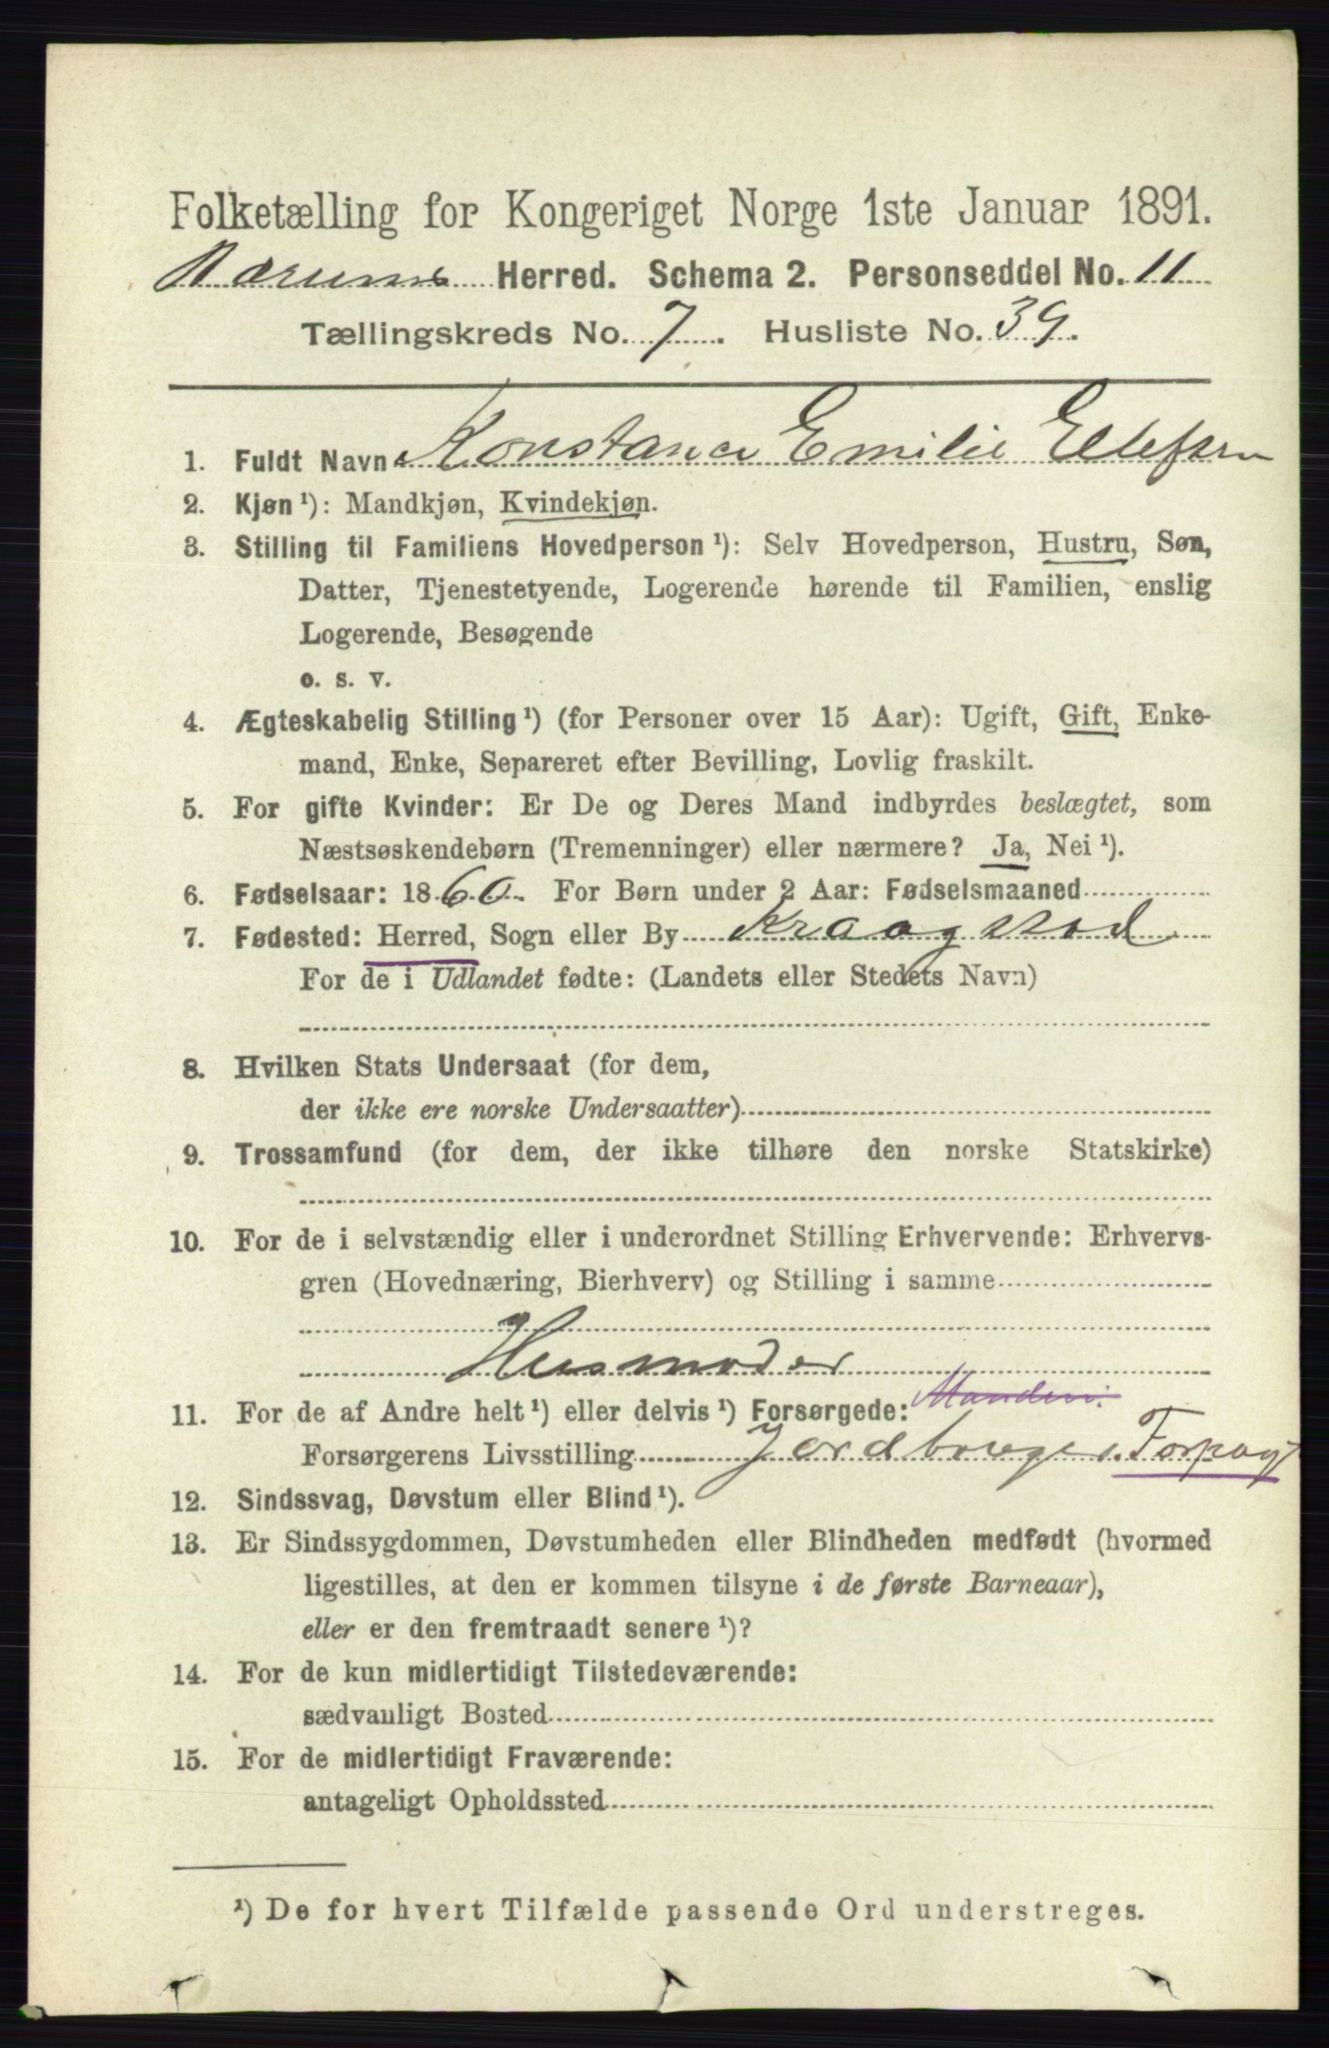 Folketælling for Kongeriget Norge 1ste Januar 1891.
Bærums Herred. Schema 2. Personseddel No. 11
Tællingskreds No. 7. Husliste No. 39.
1. Fuldt Navn Konstance Emilie Ellefsen
2. Kjøn ¹): Mandkjøn, Kvindekjøn.
3. Stilling til Familiens Hovedperson ¹): Selv Hovedperson, Hustru, Søn,
Datter, Tjenestetyende, Logerende hørende til Familien, enslig
Logerende, Besøgende
o. s. v.
4. Ægteskabelig Stilling ¹) (for Personer over 15 Aar): Ugift, Gift, Enke-
mand, Enke, Separeret efter Bevilling, Lovlig fraskilt.
5. For gifte Kvinder: Er De og Deres Mand indbyrdes beslægtet, som
Næstsøskendebørn (Tremenninger) eller nærmere? Ja, Nei ¹).
6. Fødselsaar: 1860. For Børn under 2 Aar: Fødselsmaaned
7. Fødested: Herred, Sogn eller By Kraagstad
For de i Udlandet fødte: (Landets eller Stedets Navn)
8. Hvilken Stats Undersaat (for dem,
der ikke ere norske Undersaatter)
9. Trossamfund (for dem, der ikke tilhøre den norske Statskirke)
10. For de i selvstændig eller i underordnet Stilling Erhvervende: Erhvervs-
gren (Hovednæring, Bierhverv) og Stilling i samme
Husmoder
11. For de af Andre helt ¹) eller delvis ¹) Forsørgede: Manden:
Forsørgerens Livsstilling Jordbruger. Forpagt
12. Sindssvag, Døvstum eller Blind ¹).
13. Er Sindssygdommen, Døvstumheden eller Blindheden medfødt (hvormed
ligestilles, at den er kommen tilsyne i de første Barneaar),
eller er den fremtraadt senere ¹)?
14. For de kun midlertidigt Tilstedeværende:
sædvanligt Bosted
15. For de midlertidigt Fraværende:
antageligt Opholdssted
¹) De for hvert Tilfælde passende Ord understreges.